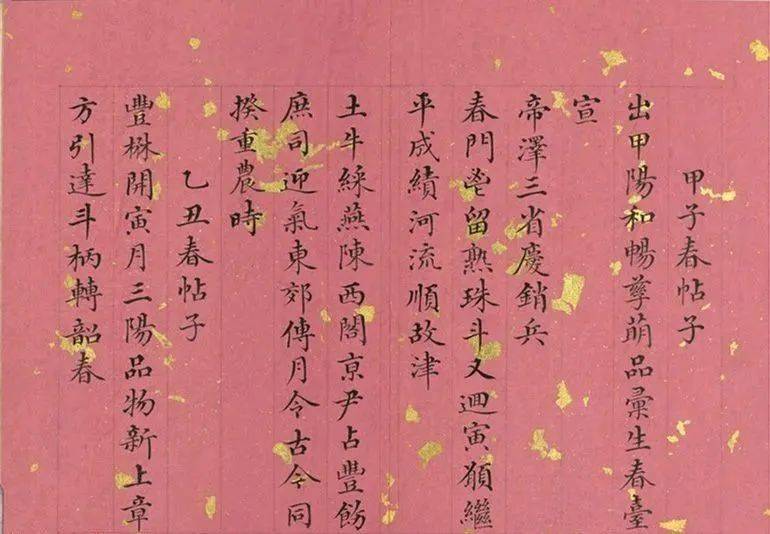 甲子春帖子
出甲陽和暢孳萌品彙生春臺
宣
帝澤三省慶銷兵
春門留熟珠斗又迴寅願繼
平成績河流順故津
土牛綵燕陳西閣亰尹占豐飭
庶司迎氣東郊傳月令古今同
揆重農時
乙丑春帖子
豐楙開寅月三陽品物新上章
方引達斗柄轉韶春